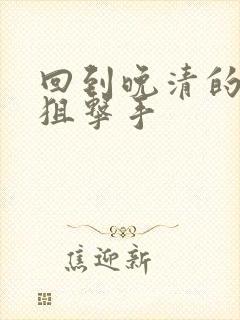 回到晚清的
狙撃手
焦迎新